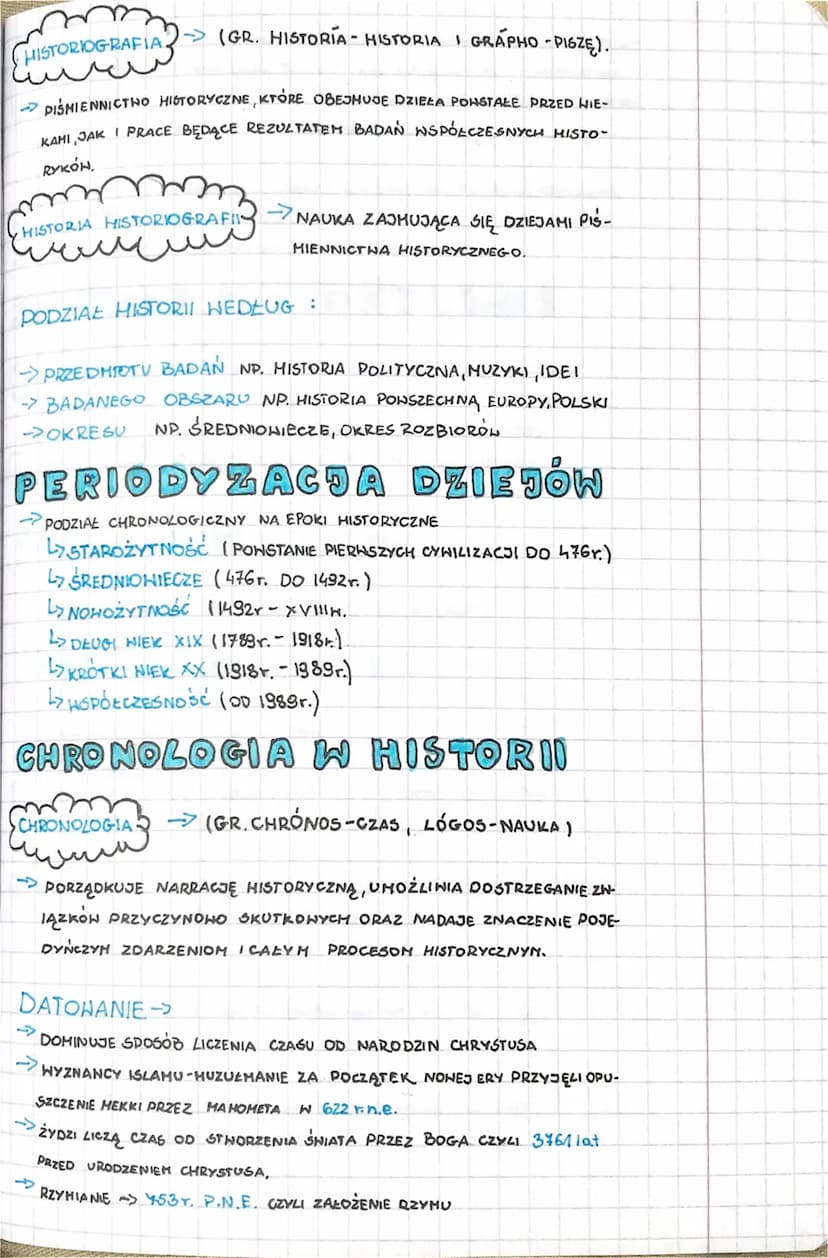 HISTORIOGRAFIA → (GR. HISTORÍA - HISTORIA I GRÁPHO - PISZĘ).
→ PIŚMIENNICTWO HISTORYCZNE, KTÓRE OBEJMUJE DZIEŁA POWSTAŁE PRZED WIE-
KAMI, JAK I PRACE BĘDĄCE REZULTATEM BADAŃ WSPÓŁCZESNYCH HISTO-
RYKÓW.
HISTORIA HISTORIOGRAFII → NAUKA ZAJMUJĄCA SIĘ DZIEJAMI PIŚ-
MIENNICTWA HISTORYCZNEGO.
PODZIAŁ HISTORII WEDŁUG :
→ PRZEDMIOTU BADAŃ NP. HISTORIA POLITYCZNA, MUZYKI, IDEI
→ BADANEGO OBSZARU NP. HISTORIA POWSZECHNA, EUROPY, POLSKI
→ OKRESU NP. ŚREDNIOWIECZE, OKRES ROZBIORÓW
PERIODYZACJA DZIEJÓW
→ PODZIAŁ CHRONOLOGICZNY NA EPOKI HISTORYCZNE
↳ STAROŻYTNOŚĆ (POWSTANIE PIERWSZYCH CYWILIZACJI DO 476r.)
↳ ŚREDNIOWIECZE (476r. DO 1492r.)
↳ NOWOŻYTNOŚĆ (1492r - XVIIIW.
↳ DŁUGI WIEK XIX (1789r. - 1918r.)
↳ KRÓTKI WIEK XX (1918r. - 1989r.)
↳ WSPÓŁCZESNOŚĆ (OD 1989r.)
CHRONOLOGIA W HISTORII
CHRONOLOGIA → (GR. CHRÓNOS - CZAS, LÓGOS - NAUKA)
→ PORZĄDKUJE NARRACJĘ HISTORYCZNĄ, UMOŻLIWIA DOSTRZEGANIE ZW-
IĄZKÓW PRZYCZYNOWO SKUTKOWYCH ORAZ NADAJE ZNACZENIE POJE-
DYŃCZYM ZDARZENIOM I CAŁYM PROCESOM HISTORYCZNYM.
DATOWANIE →
→ DOMINUJE SPOSÓB LICZENIA CZASU OD NARODZIN CHRYSTUSA
→ WYZNANCY ISLAMU - MUZUŁMANIE ZA POCZĄTEK NOWEJ ERY PRZYJĘLI OPU-
SZCZENIE MEKKI PRZEZ MAHOMETA W 622 r.n.e.
→ ŻYDZI LICZĄ CZAS OD STWORZENIA ŚWIATA PRZEZ BOGA CZYLI 3761 lat
PRZED URODZENIEM CHRYSTUSA,
→ RZYMIANIE ~> 753r. P.N.E. CZYLI ZAŁOŻENIE RZYMU